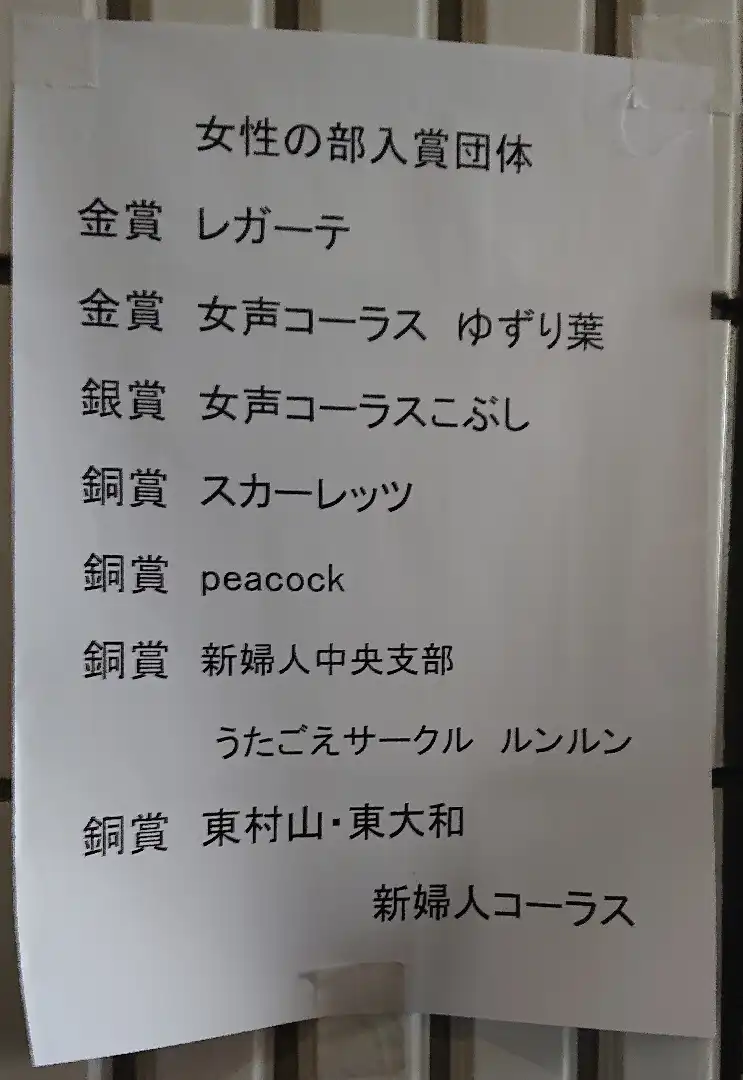 女性の部入賞団体
金賞 レガーテ
金賞 女声コーラス ゆずり葉
銀賞 女声コーラスこぶし
銅賞 スカーレッツ
銅賞 peacock
銅賞 新婦人中央支部
うたごえサークル ルンルン
銅賞 東村山・東大和
新婦人コーラス